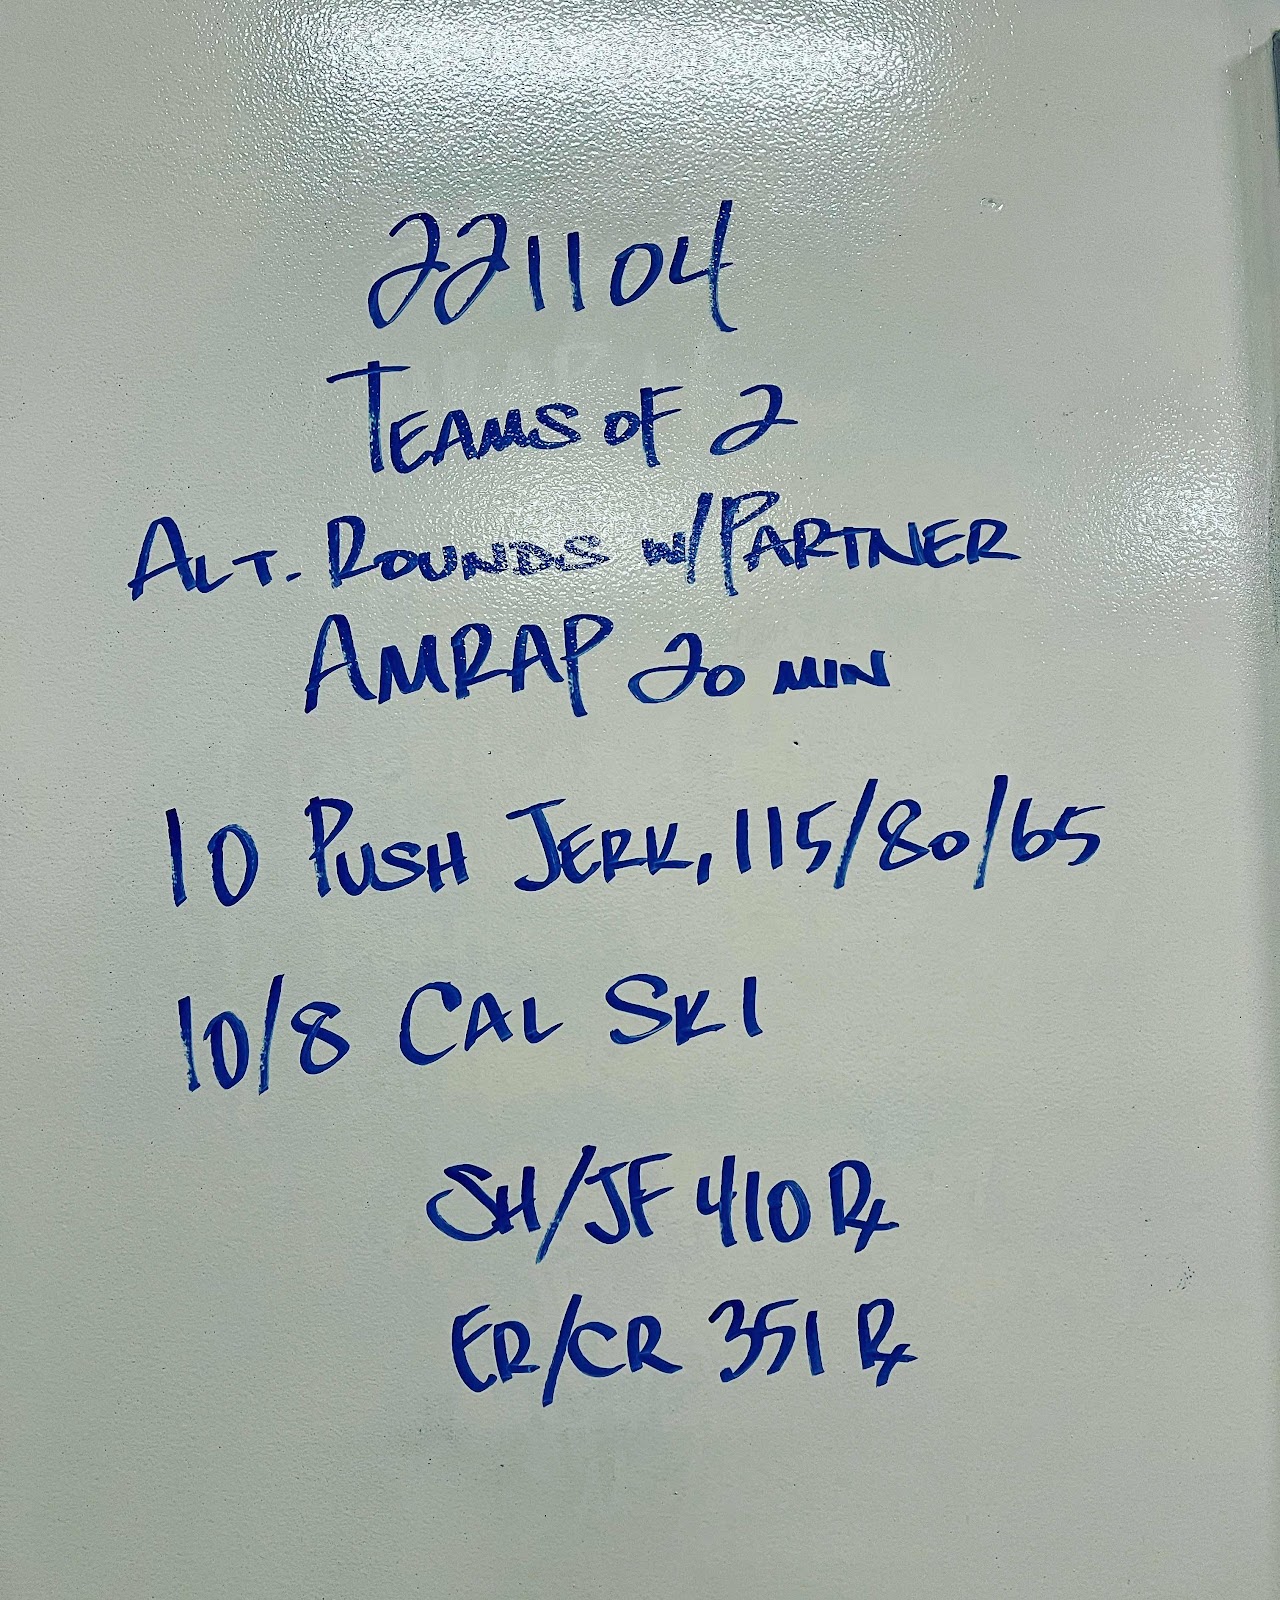 221104
TEAMS OF 2
ALT. ROUNDS W/PARTNER
AMRAP 20 MIN
10 PUSH JERK, 115/80/65
10/8 CAL SKI
SH/JF 410 Rx
ER/CR 351 Rx